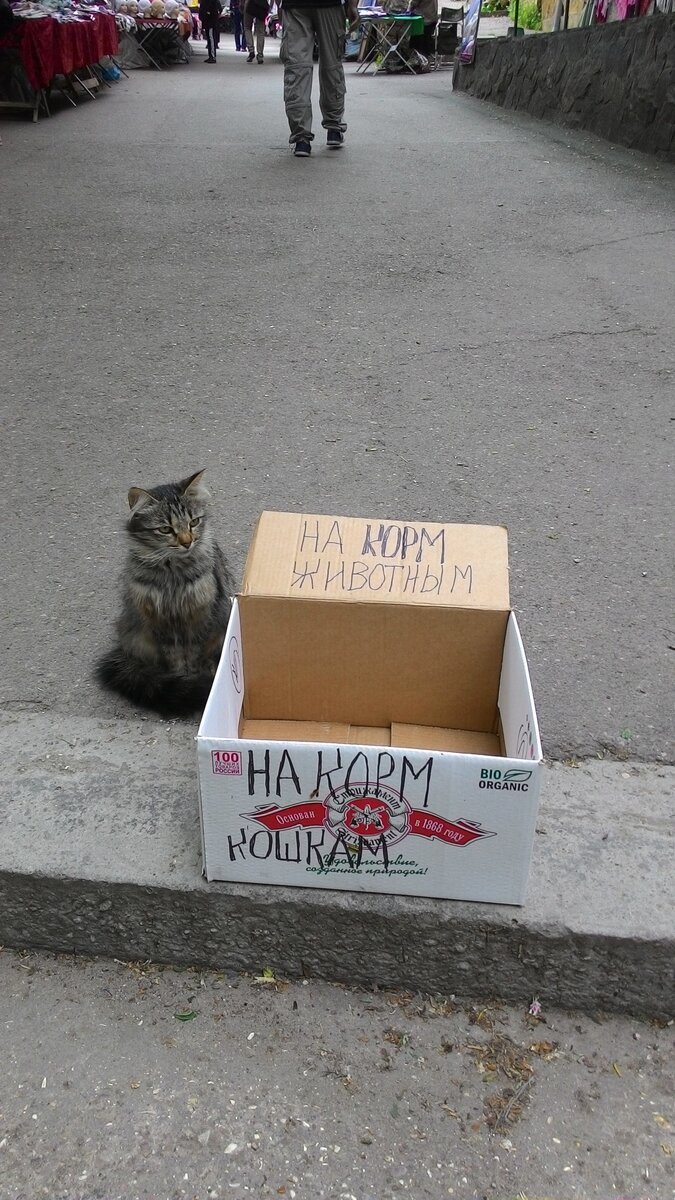 НА КОРМ
ЖИВОТНЫМ
НА КОРМ
КОШКАМ
100
ЛУЧШИХ
ТОВАРОВ
РОССИИ
BIO
ORGANIC
Стрижамент
Основан
в 1868 году
Удовольствие,
созданное природой!